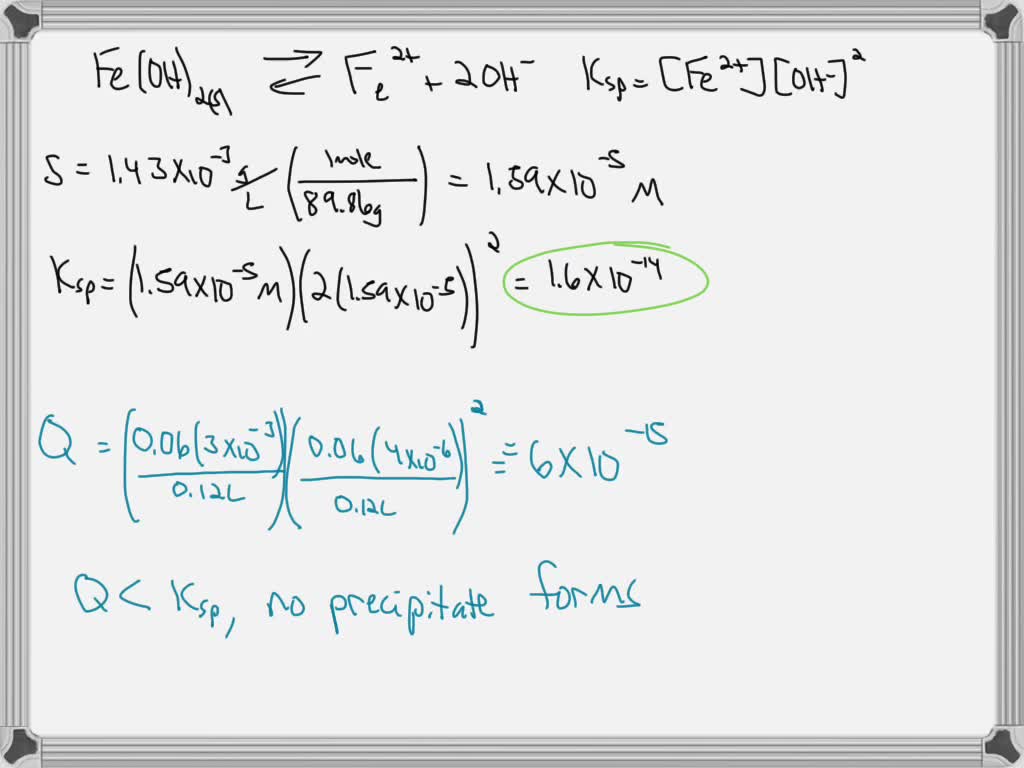 Fe(OH)₂₍ₛ₎ ⇌ Fe²⁺ + 2OH⁻ Ksp = [Fe²⁺][OH⁻]²
S = 1.43×10⁻³ g/L (1mole / 89.86g) = 1.59×10⁻⁵ M
Ksp = (1.59×10⁻⁵ M)(2(1.59×10⁻⁵))² = 1.6×10⁻¹⁴
Q = (0.06(3×10⁻³) / 0.12L)(0.06(4×10⁻⁶) / 0.12L)² = = 6×10⁻¹⁵
Q < Ksp, no precipitate forms